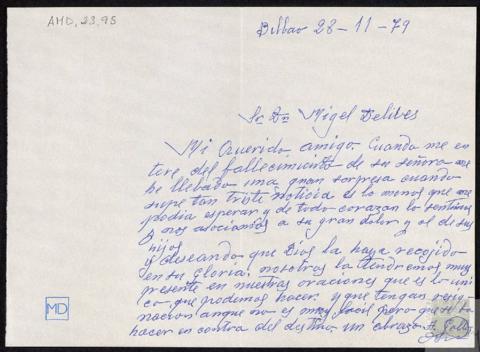 AMD, 23, 95
Bilbao 28-11-79
Sr Dn Migel Delibes
Mi Querido amigo. Cuando me en
tere del fallecimiento de su señora me
he llebado una gran sorpresa cuando
supe tan triste noticia es lo menos que me
podia esperar y de todo corazon lo sentimos
y nos asociamos a su gran dolor y al de sus
hijos
y deseando que Dios la haya recojido
en su Gloria. nosotros la tendremos muy
presente en nuestras oraciones que es lo uni
co que podemos hacer. y que tengan resig
nacion anque no es muy facil pero que se ba
hacer en contra del destino un abrazo A.
MD